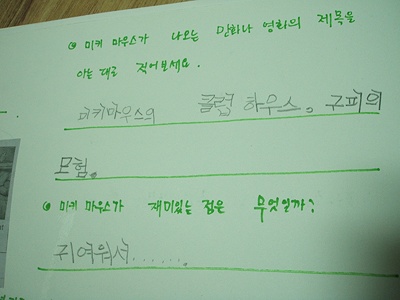 ◎ 미키 마우스가 나오는 만화나 영화의 제목을
아는 대로 적어보세요.
미키마우스의 클럽 하우스. 구피의
모험.
◎ 미키 마우스가 재미있는 점은 무엇일까?
귀여워서.......